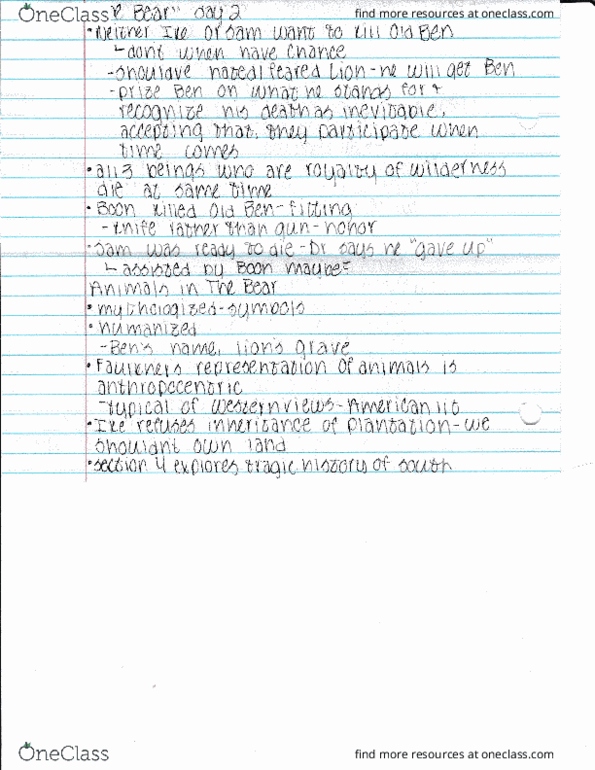 OneClass find more resources at oneclass.com
e Bear" day 2
•Neither Ike or Sam want to kill Old Ben
dont when have chance
-shouldve hated/feared Lion-he will get Ben
-prize Ben on what he stands for +
recognize his death as inevitable,
accepting that, they participate when
time comes
•all 3 beings who are royalty of wilderness
die at same time
•Boon killed Old Ben-fitting
-knife rather than gun-honor
•Sam was ready to die-Dr says he "gave up"
assisted by Boon maybe?
Animals in The Bear
•mythologized-symbols
•humanized
-Ben's name, lion's grave
•Faulkners representation of animals is
anthropocentric
-typical of western views-American lit
•Ike refuses inheritance of plantation-we
shouldnt own land
•section 4 explores tragic history of south
OneClass find more resources at oneclass.com